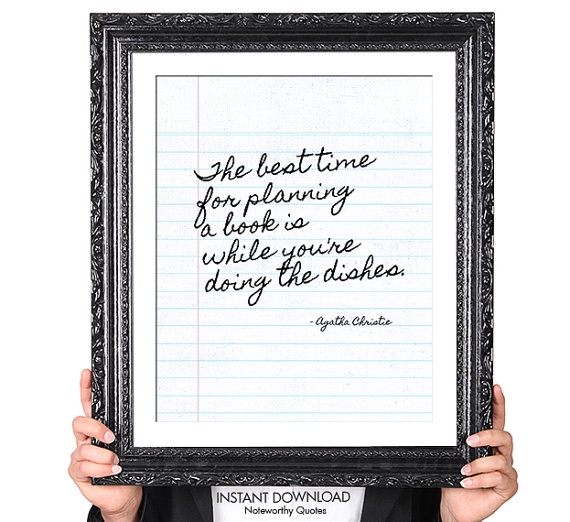 The best time
for planning
a book is
while you're
doing the dishes.
- Agatha Christie
INSTANT DOWNLOAD
Noteworthy Quotes